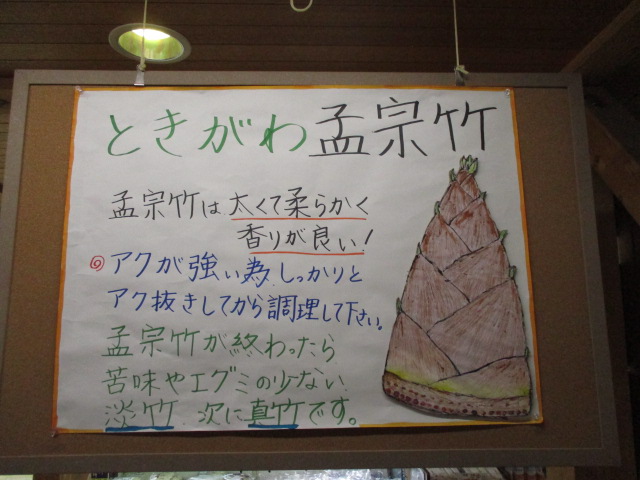 ときがわ孟宗竹
孟宗竹は太くて柔らかく
香りが良い!
◎アクが強い為しっかりと
アク抜きしてから調理して下さい。
孟宗竹が終わったら
苦味やエグミの少ない
淡竹 次に真竹です。